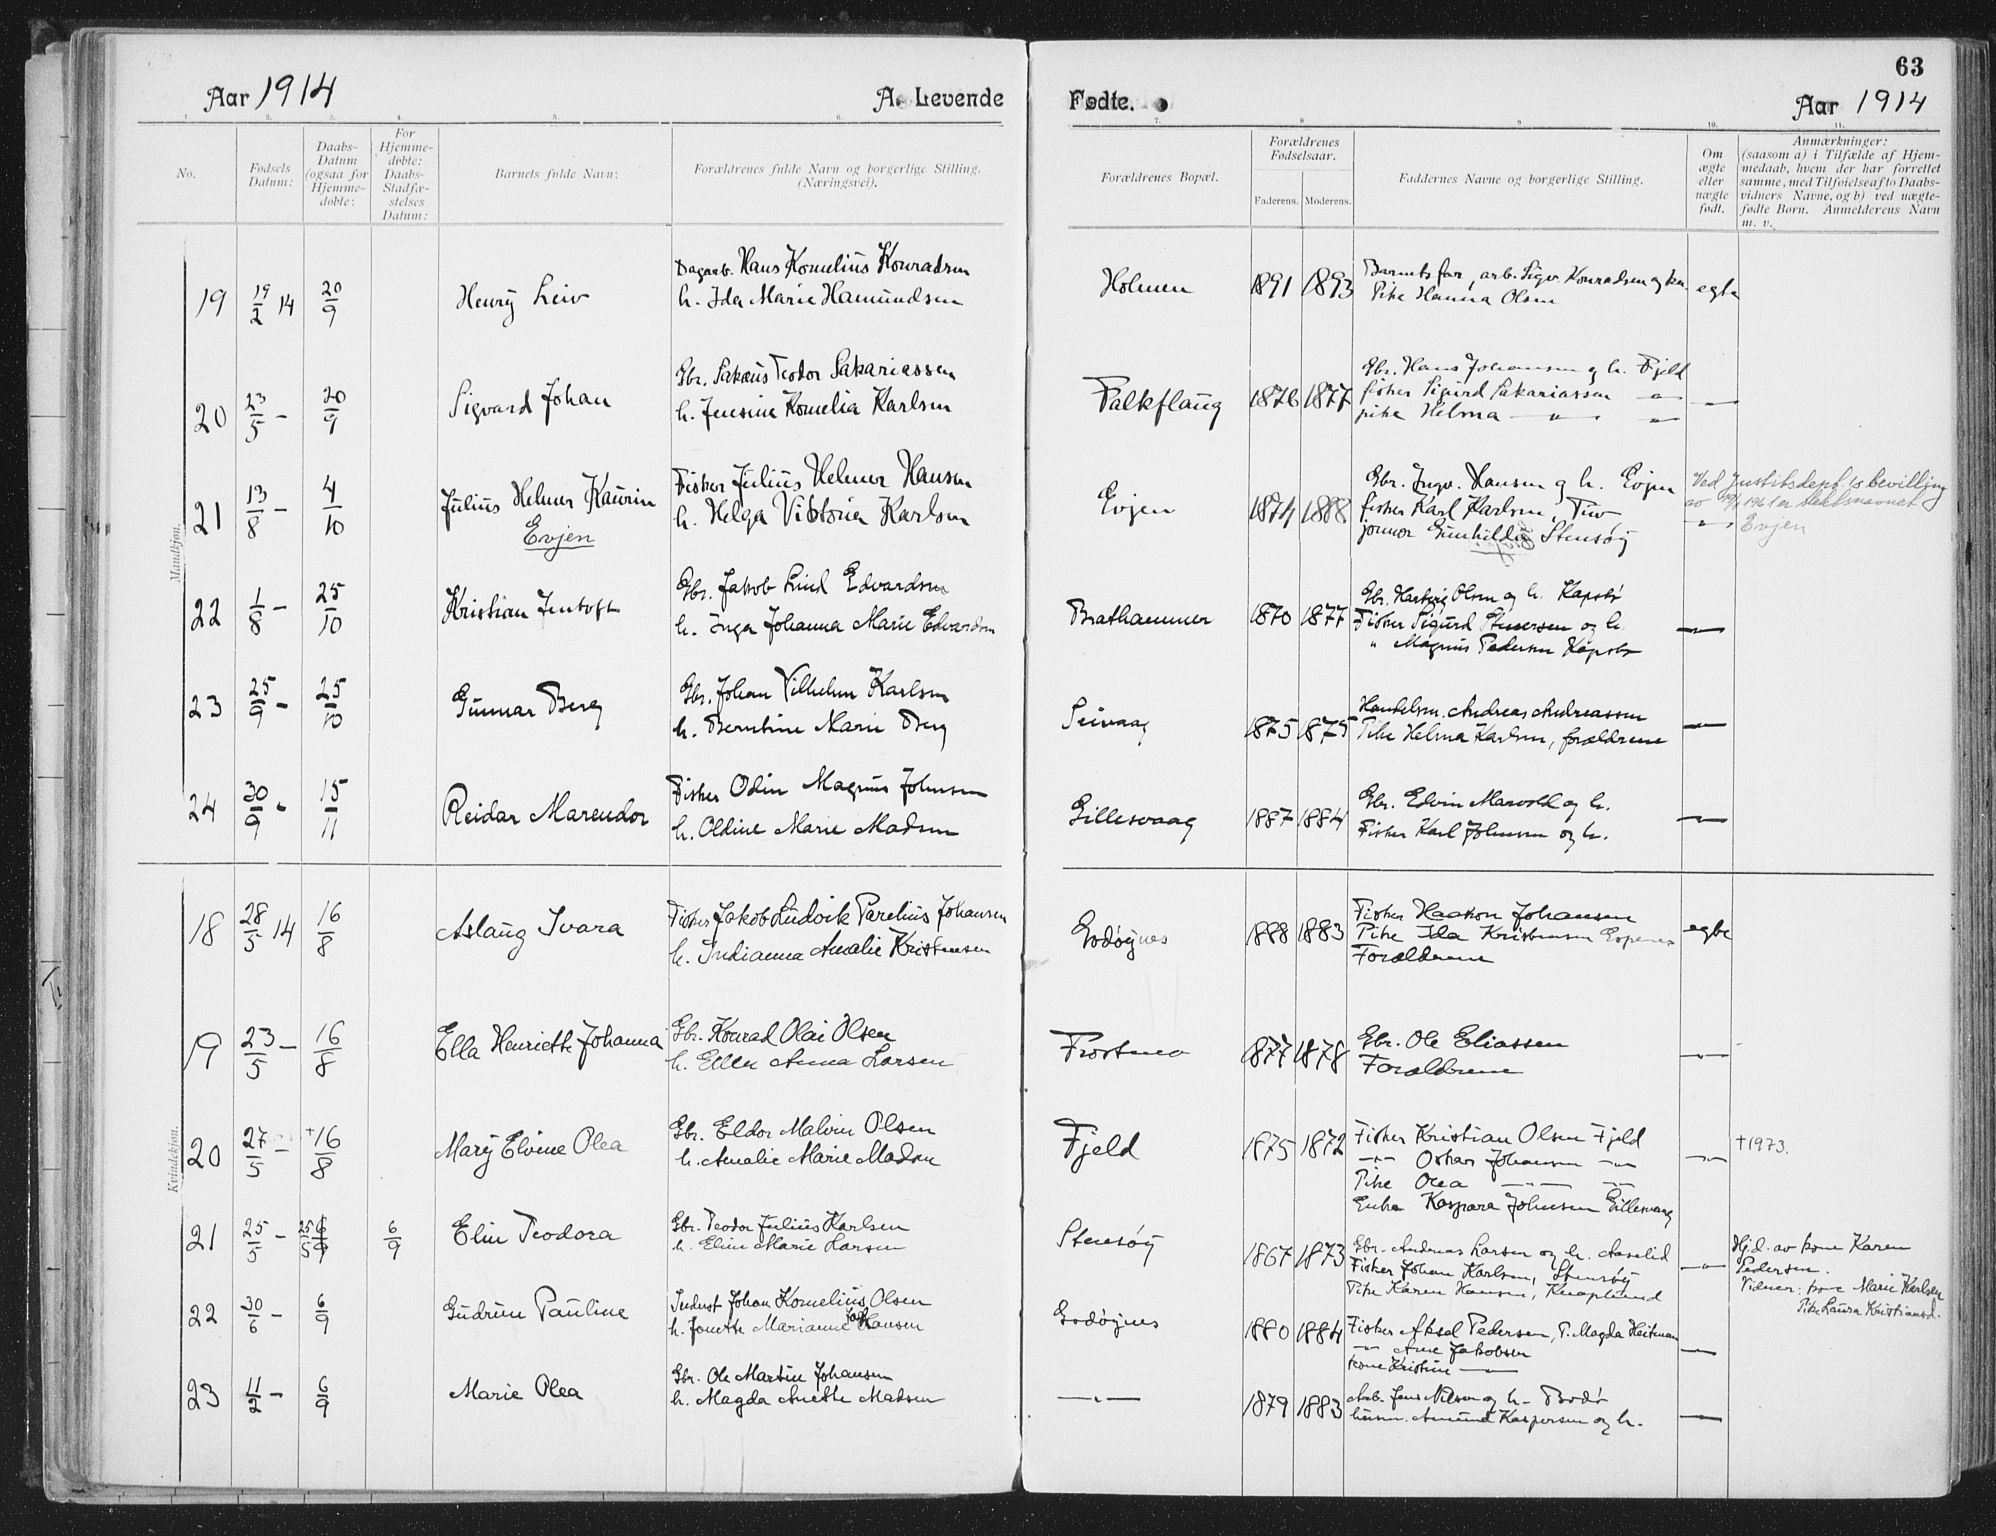 63
Aar 1914 A. Levende Fødte. Aar 1914
1. 2. 3. 4. 5. 6. 7. 8 9 10. 11.
No.
Fødsels Datum:
Daabs-Datum (ogsaa for Hjemme-døbte:
For Hjemme-døbte: Daabs-Stadfæ-stelses Datum:
Barnets fulde Navn:
Forældrenes fulde Navn og borgerlige Stilling. (Næringsvei).
Forældrenes Bopæl.
Forældrenes Fødselsaar.
Faderens. Moderens.
Faddernes Navne og borgerlige Stilling.
Om ægte eller uægte født.
Anmærkninger:
(saasom a) i Tilfælde af Hjem-
medaab, hvem der har forrettet
samme, med Tilføielse af to Daabs-
vidners Navne, og b) ved uægte-
fødte Børn. Anmelderens Navn
m. v.
Mandkjøn.
19 19/2 14 20/9 Henry Leiv
Dagarb. Hans Kornelius Konradsen
h. Ida Marie Hamundsen
Holmen 1891 1893
Barnets far, arb. Sigv. Konradsen og
Pike Hanna Olsen
egte
20 23/5 - 20/9 Sigvard Johan
Gbr. Sakæus Teodor Sakariassen
h. Jensine Kornelia Karlsen
Falkflaug 1876 1877
Gbr. Hans Johansen og h. Fjeld
fisker Sigurd Sakariassen -"-
pike Helma -"- -"-
-"-
21 13/8 - 4/10 Julius Helmer Kaurin
Evjen
Fisker Julius Helmer Hansen
h. Helga Viktoria Karlsen
Evjen 1874 1888
Gbr. Ingv. Hansen og h. Evjen
fisker Karl Karlsen, Tuv
jomor Gunhilda Stensøy
-"-
Ved Justitsdept.s bevilling
av 1961 er slektsnavnet
Evjen
22 1/8 - 25/10 Kristian Jentoft
Gbr. Jakob Lind Edvardsen
h. Inga Johanna Marie Edvardsen
Brathammer 1870 1877
Gbr. Hartvig Olsen og h. Kapsto
Fisker Sigurd og h.
" Magnus Pedersen Kapsto
-"-
23 25/9 - 25/10 Gunnar Berg
Gbr. Johan Vilhelm Karlsen
h. Berntine Marie Berg
Seivaag 1875 1875
Handelsm. Andreas Andreassen
Pike Helma Karlsen, forældrene
-"-
24 30/9 - 15/11 Reidar Marendor
Fisker Odin Magnus Johnsen
h. Oldine Marie Madsen
Gillesvaag 1887 1884
Gbr. Edvin Marvold og h.
Fisker Karl Johnsen og h.
-"-
Kvindekjøn.
18 28/5 14 16/8 Aslaug Ivara
Fisker Jakob Ludvik Parelius Johansen
h. Indianna Amalie Kristensen
Godøynes 1888 1883
Fisker Haakon Johansen
Pike Ida Kristensen Espenes
Forældrene
egte
19 23/5 - 16/8 Ella Henriette Johanna
Gbr. Konrad Olai Olsen
h. Ellen Anna Larsen
Frostmo 1877 1878
Gbr. Ole Eliassen
Forældrene
-"-
20 27/5 - +16/8 Mary Elvine Olea
Gbr. Eldor Malvin Olsen
h. Amalie Marie Madsen
Fjeld 1875 1872
Fisker Kristian Olsen Fjeld
-"- Oskar Johansen -"-
Pike Olea -"- -"-
Enke Kaspara Johnsen Gillesvaag
-"-
†1973.
21 25/5 - 25/5 6/9 6/9 Elin Teodora
Gbr. Teodor Julius Karlsen
h. Elen Marie Larsen
Stensøy 1867 1873
Gbr. Andreas Larsen og h. Aaselid
Fisker Johan Karlsen, Stensøy
Pike Karen Hansen, Knaplund
-"-
Hj.d. av kone Karen
Pedersen.
Vidner: kone Marie Karlsen
Pike Laura Kristiansd.
22 30/6 - 6/9 Gudrun Pauline
Indust Johan Kornelius Olsen
h. Jonette Marianne Hansen
Godøynes 1880 1884
Fisker Aksel Pedersen, P. Magda Heitman
-"- Arne Jakobsen
kone Kristine -"-
-"-
23 11/2 - 6/9 Marie Olea
Gbr. Ole Martin Johansen
h. Magda Anette Madsen
-"- 1879 1883
Arb. Jens Nilsen og h. Bodø
husm. Amund Kaspersen og h.
-"-